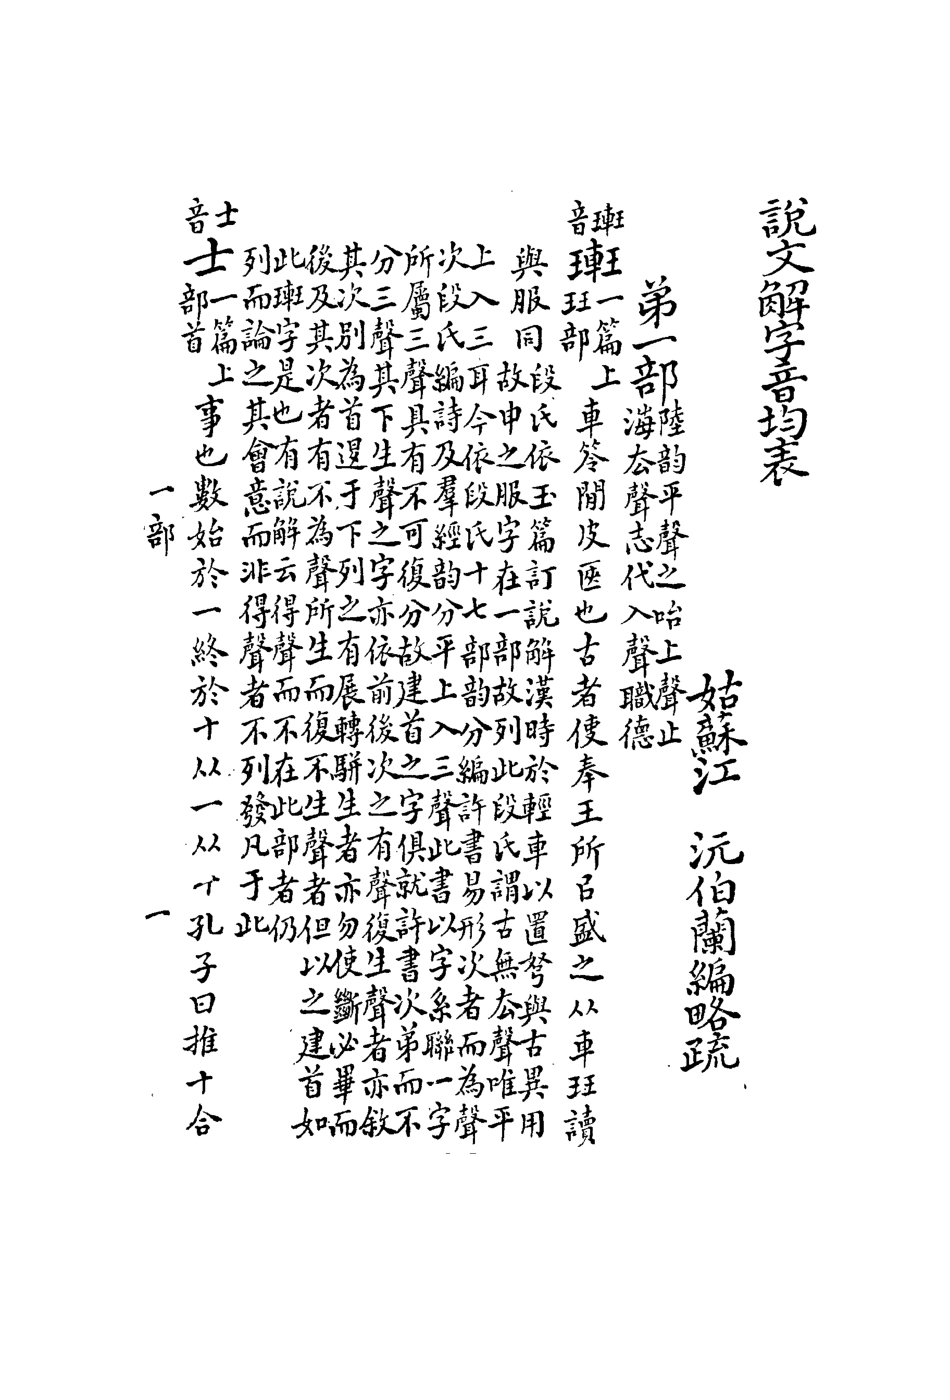 說文解字音均表
姑蘇江　沅伯蘭編略疏
第一部
陸韵平聲之咍上聲止
海厺聲志代入聲職德
𤦲音
𤦲
一篇上
珏部
車笭閒皮匧也古者使奉王所㠯盛之从車珏讀
與服同
段氏依玉篇訂說解漢時於輕車以置弩與古異用
故申之服字在一部故列此段氏謂古無厺聲唯平
上入三耳今依段氏十七部韵分編許書易形次者而為聲
次段氏編詩及羣經韵分平上入三聲此書以字系聯一字
所屬三聲具有不可復分故建首之字俱就許書次弟而不
分三聲其下生聲之字亦依前後次之有聲復生聲者亦敘
其次別為首遝于下列之有展轉駢生者亦勿使斷必畢而
後及其次者有不為聲所生而復不生聲者但以之建首如
此𤦲字是也有說解云得聲而不在此部者仍
列而論之其會意而非得聲者不列發凡于此
士音
士
一篇上
部首
事也數始於一終於十从一从十孔子曰推十合
一部
一